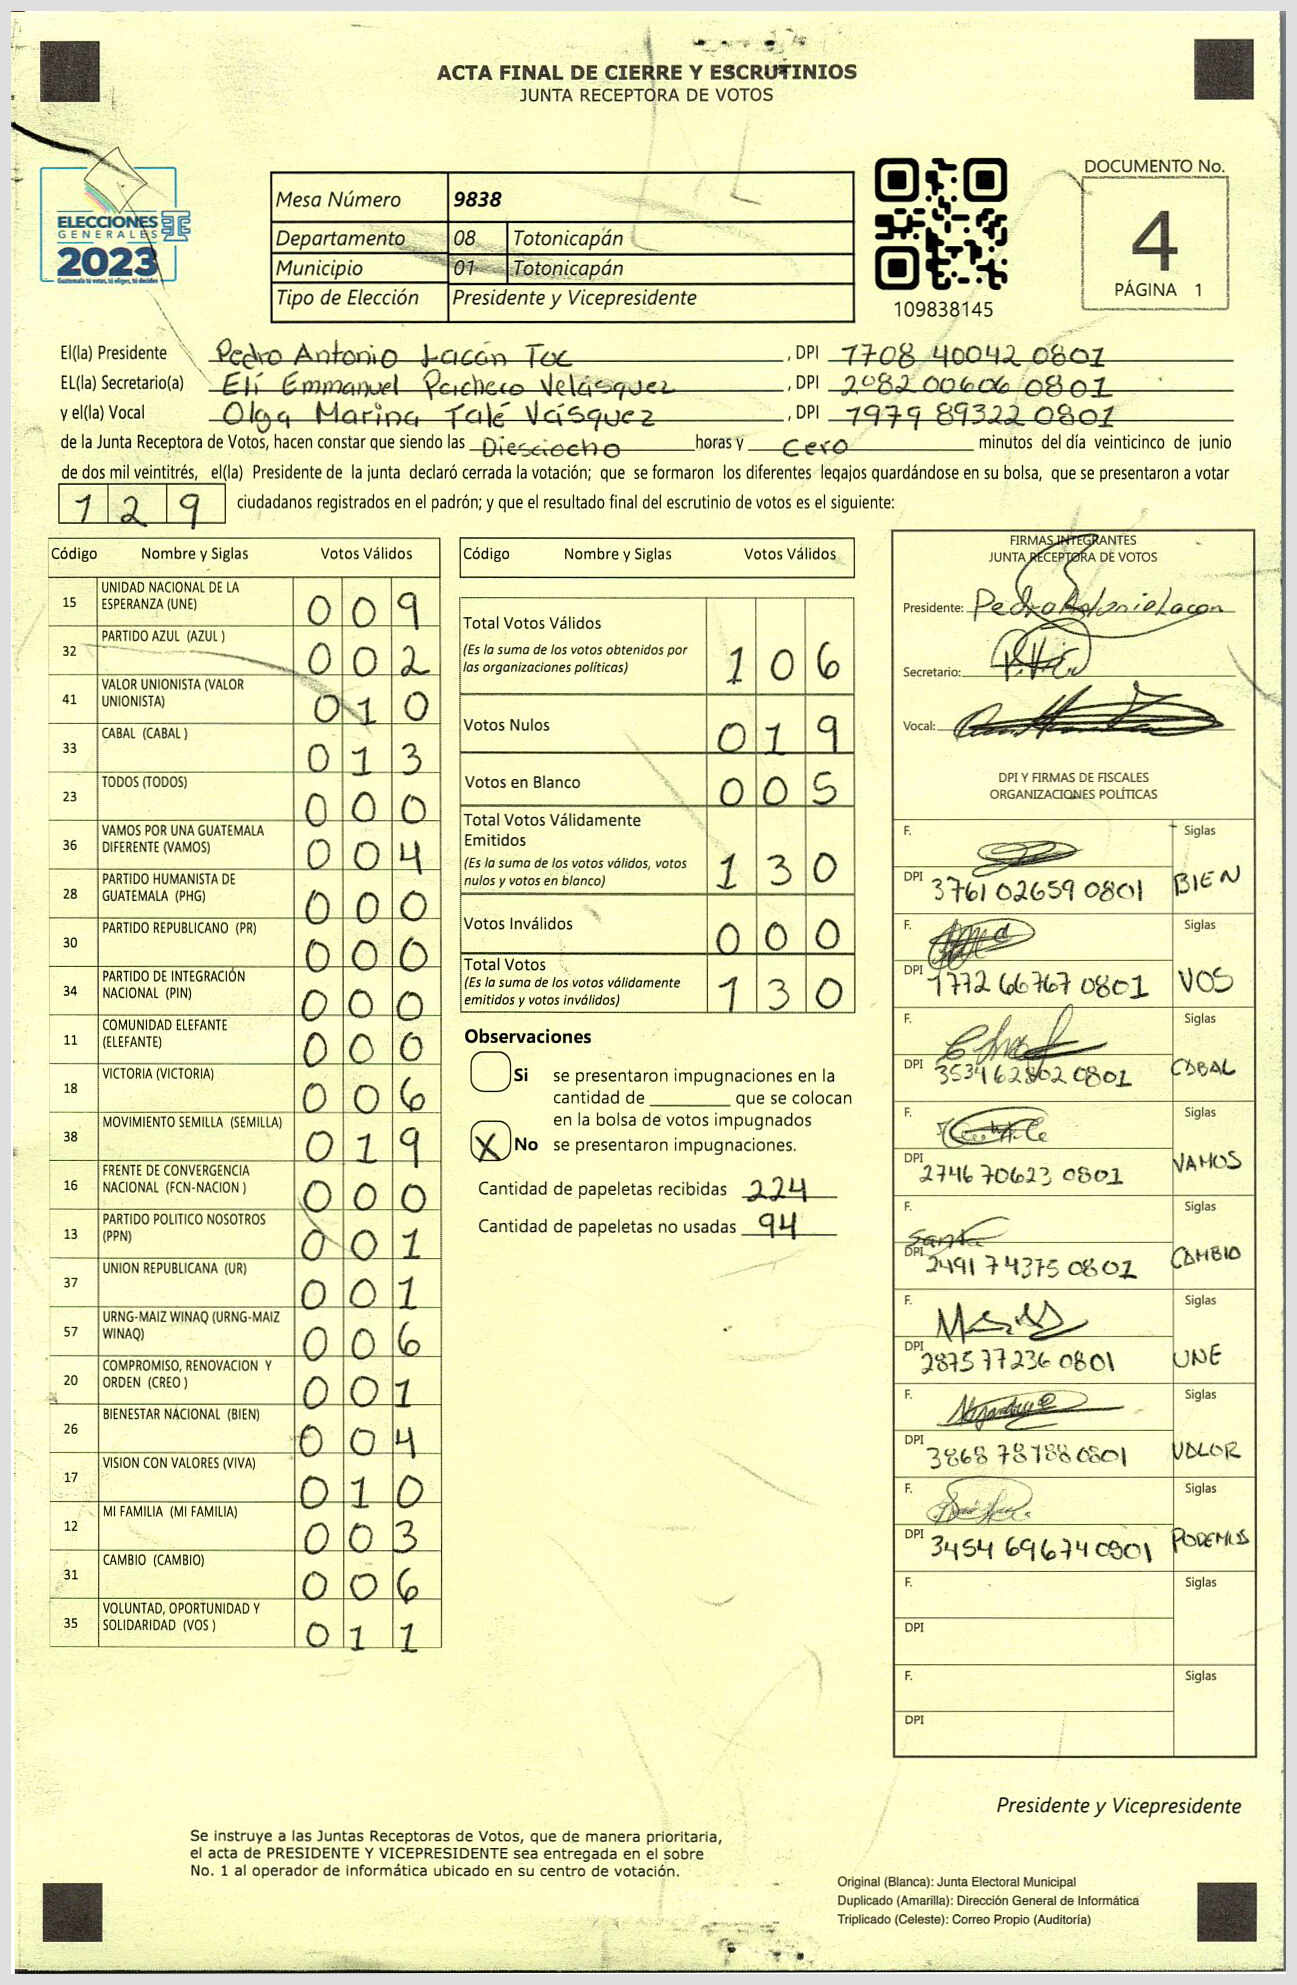 ACTA FINAL DE CIERRE Y ESCRUTINIOS
JUNTA RECEPTORA DE VOTOS
ELECCIONES
GENERALES
2023
Guatemala tú votas, tú eliges, tú decides
Mesa Número 9838
Departamento 08 Totonicapán
Municipio 01 Totonicapán
Tipo de Elección Presidente y Vicepresidente
109838145
DOCUMENTO No.
4
PÁGINA 1
El(la) Presidente Pedro Antonio Lacán Toc, DPI 1708 40042 0801
EL(la) Secretario(a) Elí Emmanuel Pacheco Velásquez, DPI 2082 00606 0801
y el(la) Vocal Olga Marina Talé Vásquez, DPI 1979 89322 0801
de la Junta Receptora de Votos, hacen constar que siendo las Diesciocho horas y Cero minutos del día veinticinco de junio
de dos mil veintitrés, el(la) Presidente de la junta declaró cerrada la votación; que se formaron los diferentes legajos guardándose en su bolsa, que se presentaron a votar
129 ciudadanos registrados en el padrón; y que el resultado final del escrutinio de votos es el siguiente:
Código Nombre y Siglas Votos Válidos
15 UNIDAD NACIONAL DE LA ESPERANZA (UNE) 009
32 PARTIDO AZUL (AZUL ) 002
41 VALOR UNIONISTA (VALOR UNIONISTA) 010
33 CABAL (CABAL ) 013
23 TODOS (TODOS) 000
36 VAMOS POR UNA GUATEMALA DIFERENTE (VAMOS) 004
28 PARTIDO HUMANISTA DE GUATEMALA (PHG) 000
30 PARTIDO REPUBLICANO (PR) 000
34 PARTIDO DE INTEGRACIÓN NACIONAL (PIN) 000
11 COMUNIDAD ELEFANTE (ELEFANTE) 000
18 VICTORIA (VICTORIA) 006
38 MOVIMIENTO SEMILLA (SEMILLA) 019
16 FRENTE DE CONVERGENCIA NACIONAL (FCN-NACION ) 000
13 PARTIDO POLITICO NOSOTROS (PPN) 001
37 UNION REPUBLICANA (UR) 001
57 URNG-MAIZ WINAQ (URNG-MAIZ WINAQ) 006
20 COMPROMISO, RENOVACION Y ORDEN (CREO ) 001
26 BIENESTAR NACIONAL (BIEN) 004
17 VISION CON VALORES (VIVA) 010
12 MI FAMILIA (MI FAMILIA) 003
31 CAMBIO (CAMBIO) 006
35 VOLUNTAD, OPORTUNIDAD Y SOLIDARIDAD (VOS ) 011
Código Nombre y Siglas Votos Válidos
Total Votos Válidos
(Es la suma de los votos obtenidos por
las organizaciones políticas) 106
Votos Nulos 019
Votos en Blanco 005
Total Votos Válidamente
Emitidos
(Es la suma de los votos válidos, votos
nulos y votos en blanco) 130
Votos Inválidos 000
Total Votos
(Es la suma de los votos válidamente
emitidos y votos inválidos) 130
Observaciones
Si se presentaron impugnaciones en la
cantidad de ________ que se colocan
en la bolsa de votos impugnados
X No se presentaron impugnaciones.
Cantidad de papeletas recibidas 224
Cantidad de papeletas no usadas 94
FIRMAS INTEGRANTES
JUNTA RECEPTORA DE VOTOS
Presidente: Pedro Antonio Lacan
Secretario:
Vocal:
DPI Y FIRMAS DE FISCALES
ORGANIZACIONES POLÍTICAS
F. Siglas
DPI 3761 02659 0801 BIEN
F. Siglas
DPI 1772 66767 0801 VOS
F. Siglas
DPI 3534 62802 0801 CABAL
F. Siglas
DPI 2746 70623 0801 VAMOS
F. Siglas
DPI 2491 74375 0801 CAMBIO
F. Siglas
DPI 2875 77236 0801 UNE
F. Siglas
DPI 3868 78788 0801 VALOR
F. Siglas
DPI 3454 69674 0801 PODEMOS
F. Siglas
DPI
F. Siglas
DPI
Presidente y Vicepresidente
Se instruye a las Juntas Receptoras de Votos, que de manera prioritaria,
el acta de PRESIDENTE Y VICEPRESIDENTE sea entregada en el sobre
No. 1 al operador de informática ubicado en su centro de votación.
Original (Blanca): Junta Electoral Municipal
Duplicado (Amarilla): Dirección General de Informática
Triplicado (Celeste): Correo Propio (Auditoría)